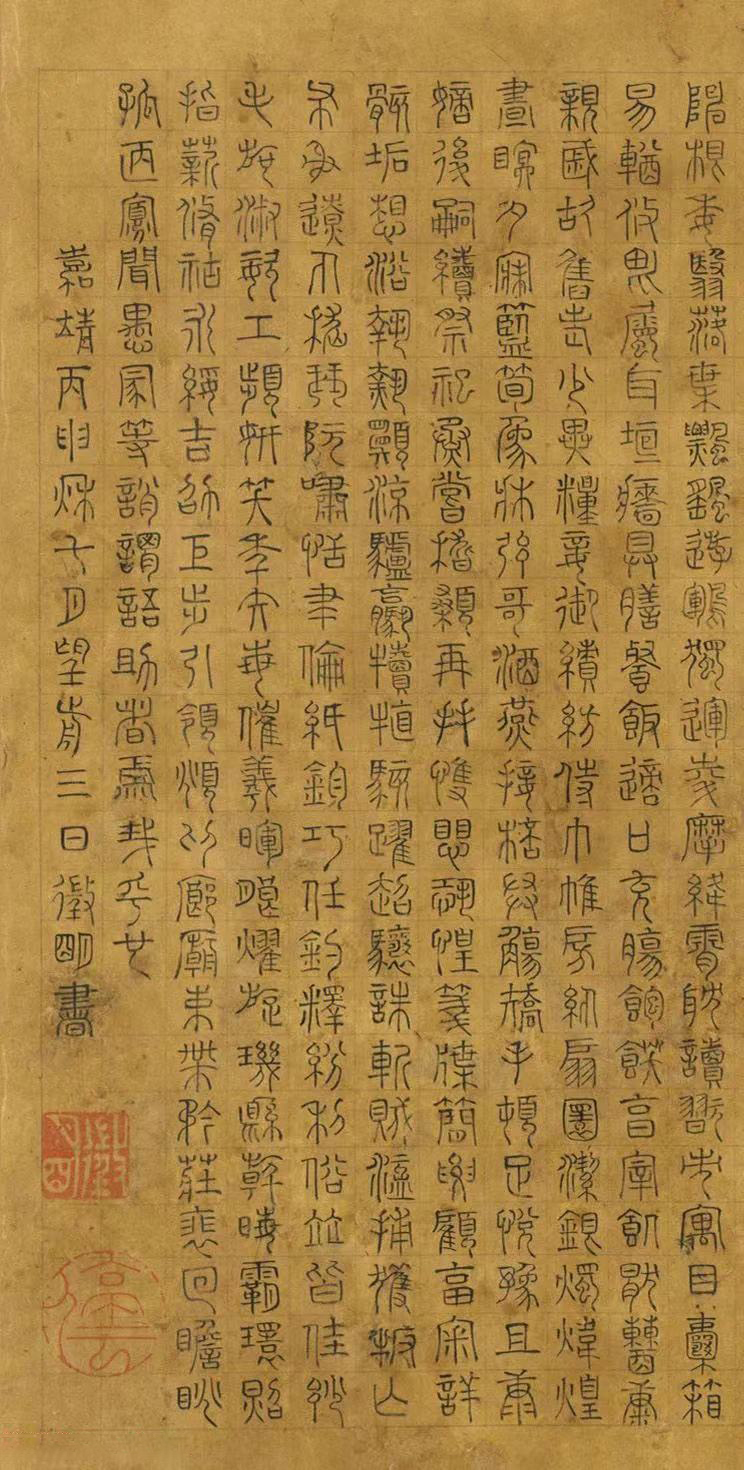 陳根委翳落葉飄颻遊鵾獨運凌摩絳霄耽讀翫市寓目囊箱
易輶攸畏屬耳垣牆具膳餐飯適口充腸飽飫烹宰飢厭糟糠
親戚故舊老少異糧妾御績紡侍巾帷房紈扇圓潔銀燭煒煌
晝眠夕寐籃筍象牀弦歌酒宴接杯舉觴矯手頓足悅豫且康
嫡後嗣續祭祀烝嘗稽顙再拜悚懼恐惶牋牒簡要顧答審詳
骸垢想浴執熱願涼驢騾犢特駭躍超驤誅斬賊盜捕獲叛亡
布射遼丸嵇琴阮嘯恬筆倫紙鈞巧任釣釋紛利俗並皆佳妙
毛施淑姿工顰妍笑年矢每催羲暉朗耀旋璣縣斡晦魄環照
指薪脩祜永綏吉劭矩步引領俯仰廊廟束帶矜莊徘徊瞻眺
孤陋寡聞愚蒙等誚謂語助者焉哉乎也
嘉靖丙申秋七月望前三日徵明書
停云